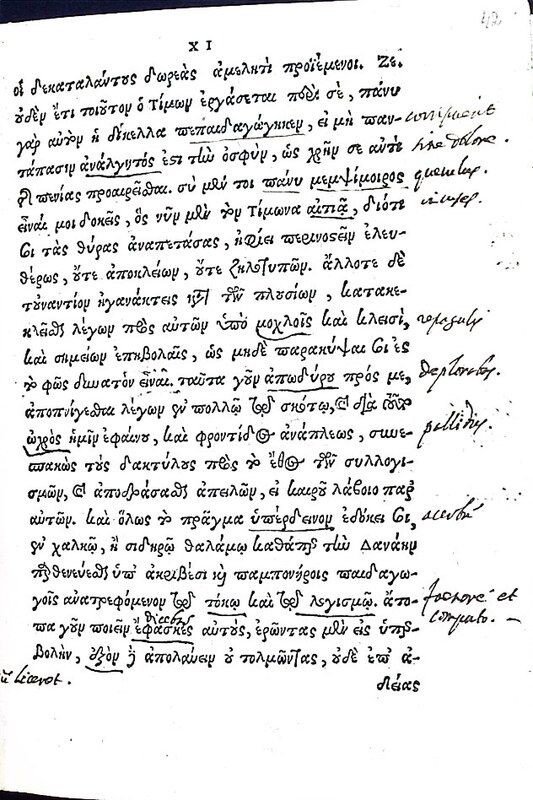 42
XI
οἱ δεκαταλάντους δωρεὰς ἀμελητὶ προϊέμενοι. Ζε.
οὐδὲν ἔτι τοιοῦτον ὁ Τίμων ἐργάσεται πρὸς σὲ, πάνυ
γὰρ αὐτὸν ἡ δίκελλα πεπαιδαγώγηκεν, εἰ μὴ παν-
τάπασιν ἀνάλγητός ἐστι τὴν ὀσφὺν, ὡς χρῆν σε αὐτὶ sine dolore.
τῆς πενίας προαιρεῖσθαι. σὺ μέν τοι πάνυ μεμψίμοιρος
εἶναί μοι δοκεῖς, ὃς νῦν μὲν τὸν Τίμωνα αἰτιᾷ, διότι
σοι τὰς θύρας ἀναπετάσας, ἠφίει περινοστεῖν ἐλευ-
θέρως, οὔτε ἀποκλείων, οὔτε ζηλοτυπῶν. ἄλλοτε δὲ
τοὐναντίον ἠγανάκτεις κατὰ τῶν πλουσίων, κατακε-
κλεῖσθαι λέγων πρὸς αὐτῶν ὑπὸ μοχλοῖς καὶ κλεισὶ,
καὶ σημείων ἐπιβολαῖς, ὡς μηδὲ παρακύψαι σοι ἐς
τὸ φῶς δυνατὸν εἶναι. ταῦτα γοῦν ἀπωδύρου πρός με,
ἀποπνίγεσθαι λέγων ἐν πολλῷ τῷ σκότῳ, καὶ διὰ τοῦτο
ὠχρὸς ἡμῖν ἐφαίνου, καὶ φροντίδος ἀνάπλεως, συνε- pallidus.
σπακὼς τοὺς δακτύλους πρὸς τὸ ἔθος τῶν συλλογι-
σμῶν, καὶ ἀποδράσεσθαι ἀπειλῶν, εἰ καιροῦ λάβοιο παρ'
αὐτῶν. καὶ ὅλως τὸ πρᾶγμα ὑπέρδεινον ἐδόκει σοι,
ἐν χαλκῷ, ἢ σιδηρῷ θαλάμῳ καθάπερ τὴν Δανάην
παρθενεύεσθαι ὑπ' ἀκριβέσι καὶ παμπονήροις παιδαγω-
γοῖς ἀνατρεφόμενον τῷ τόκῳ καὶ τῷ λογισμῷ. ἄτο- foenore et
πα γοῦν ποιεῖν ἔφασκες αὐτοὺς, ἐρῶντας μὲν εἰς ὑπερ- computo.
βολὴν, ἐξὸν δ' ἀπολαύειν οὐ τολμῶντας, οὐδὲ ἐπ' ἀ-
δείας